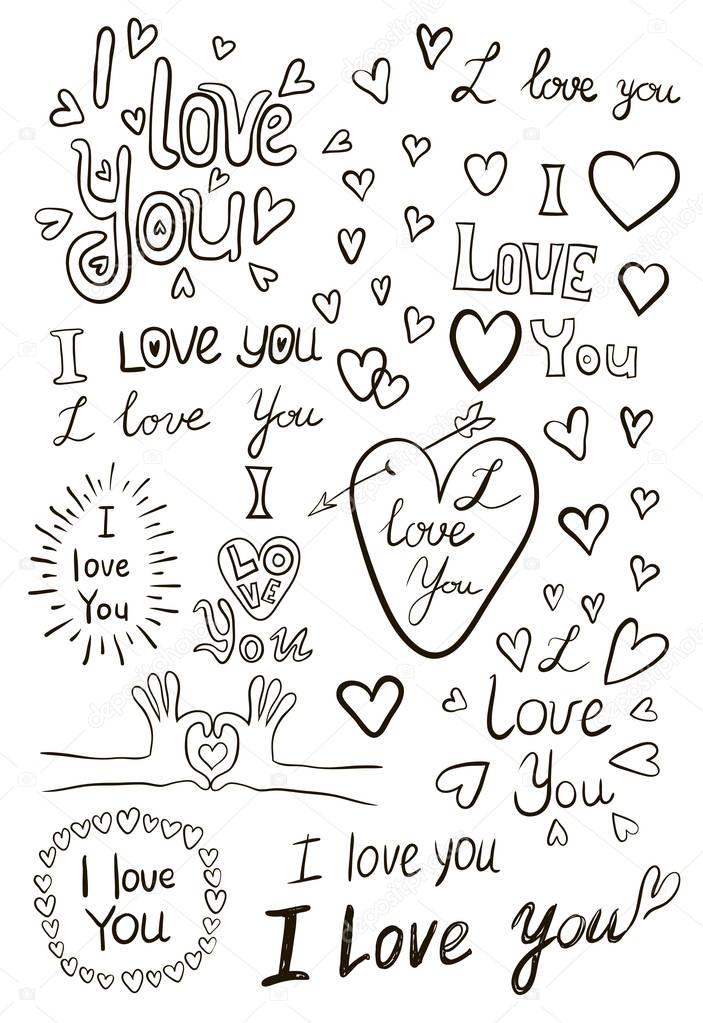 I
love
You
I love you
I
LOVE
You
I LOVE you
I love You
I
love
You
I
LO
VE
You
I
love
You
I
love
You
I love
You
I love you
I Love you
depositphotos